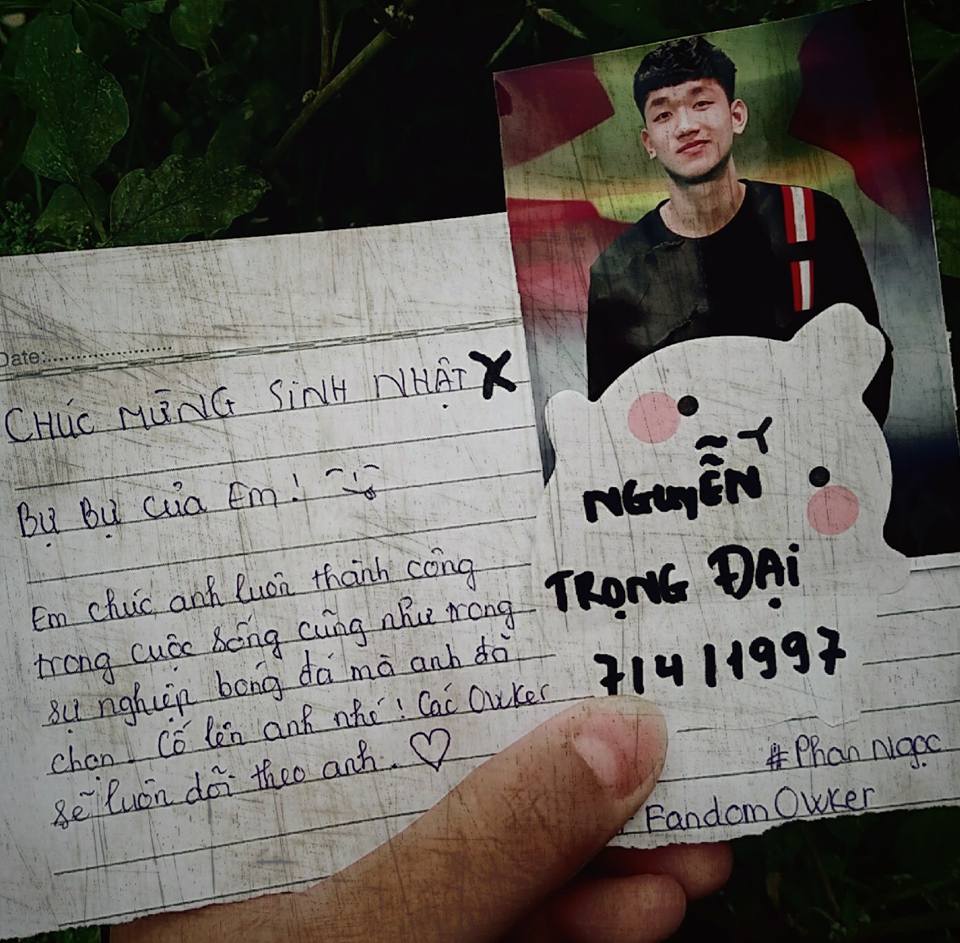 Date:
CHÚC MỪNG SINH NHẬT X
Bự Bự của Em!
Em chúc anh luôn thành công
trong cuộc sống cũng như trong
sự nghiệp bóng đá mà anh đã
chọn. Cố lên anh nhé! Các Owker
sẽ luôn dõi theo anh.
NGUYỄN
TRỌNG ĐẠI
7/4/1997
#Phan Ngọc
Fandom Owker